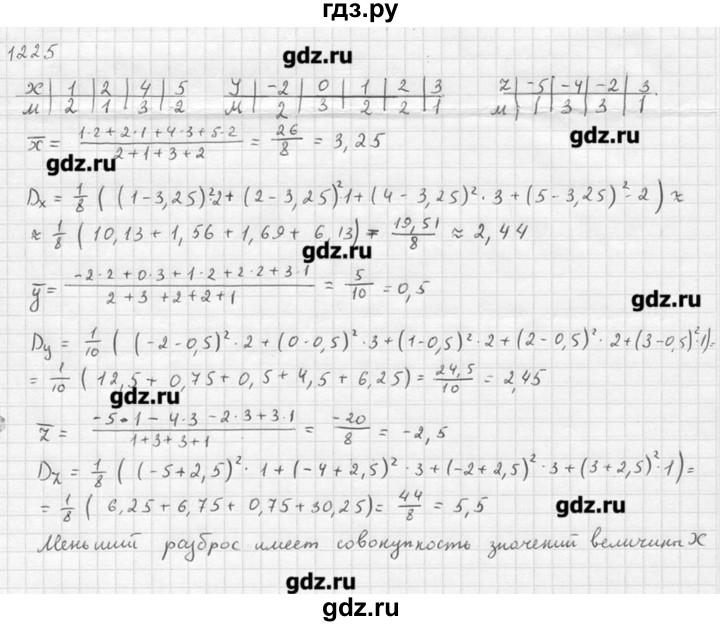 гдз.ру
1225
gdz.ru
x | 1 | 2 | 4 | 5
м | 2 | 1 | 3 | 2
y | -2 | 0 | 1 | 2 | 3
м | 2 | 3 | 2 | 2 | 1
z | -5 | -4 | -2 | 3
м | 1 | 3 | 3 | 1
gdz.ru
x̄ = (1·2+2·1+4·3+5·2)/(2+1+3+2) = 26/8 = 3,25
gdz.ru
Dx = 1/8 ((1-3,25)²·2+(2-3,25)²·1+(4-3,25)²·3+(5-3,25)²·2) ≈
≈ 1/8 (10,13+1,56+1,69+6,13) = 19,51/8 ≈ 2,44
gdz.ru
ȳ = (-2·2+0·3+1·2+2·2+3·1)/(2+3+2+2+1) = 5/10 = 0,5
gdz.ru
Dy = 1/10 ((-2-0,5)²·2+(0-0,5)²·3+(1-0,5)²·2+(2-0,5)²·2+(3-0,5)²·1)=
= 1/10 (12,5+0,75+0,5+4,5+6,25) = 24,5/10 = 2,45
gdz.ru
z̄ = (-5·1-4·3-2·3+3·1)/(1+3+3+1) = -20/8 = -2,5
Dz = 1/8 ((-5+2,5)²·1+(-4+2,5)²·3+(-2+2,5)²·3+(3+2,5)²·1)=
= 1/8 (6,25+6,75+0,75+30,25) = 44/8 = 5,5
gdz.ru
Меньший разброс имеет совокупность значений величины X
gdz.ru
gdz.ru